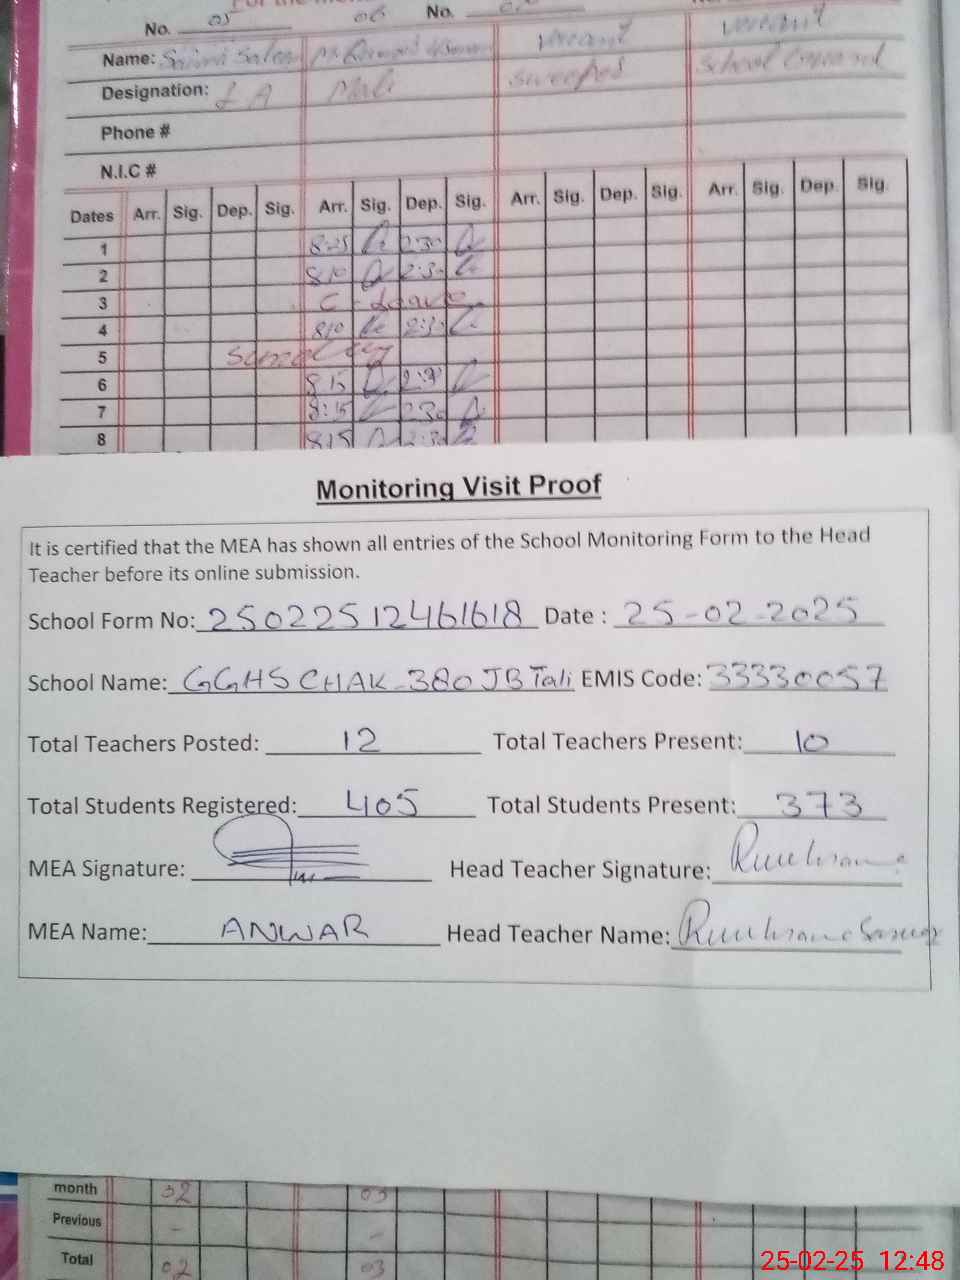 No. 05 06 No.
Name: Saima Saleem vecant vecant
Designation: L A Mali sweeper school
Phone #
N.I.C #
Dates Arr. Sig. Dep. Sig. Arr. Sig. Dep. Sig. Arr. Sig. Dep. Sig. Arr. Sig. Dep. Sig.
1 8:25 2:30
2 8:10 2:30
3 C - Leave
4 810 2:30
5 School
6 8 15
7 8:15 2:30
8 815 2:30
Monitoring Visit Proof
It is certified that the MEA has shown all entries of the School Monitoring Form to the Head
Teacher before its online submission.
School Form No: 25022512461618 Date : 25-02-2025
School Name: GGHS CHAK-380 JB Tali EMIS Code: 33330057
Total Teachers Posted: 12 Total Teachers Present: 10
Total Students Registered: 405 Total Students Present: 373
MEA Signature: Head Teacher Signature:
MEA Name: ANWAR Head Teacher Name:
month 02 03
Previous - -
Total 02 03
25-02-25 12:48